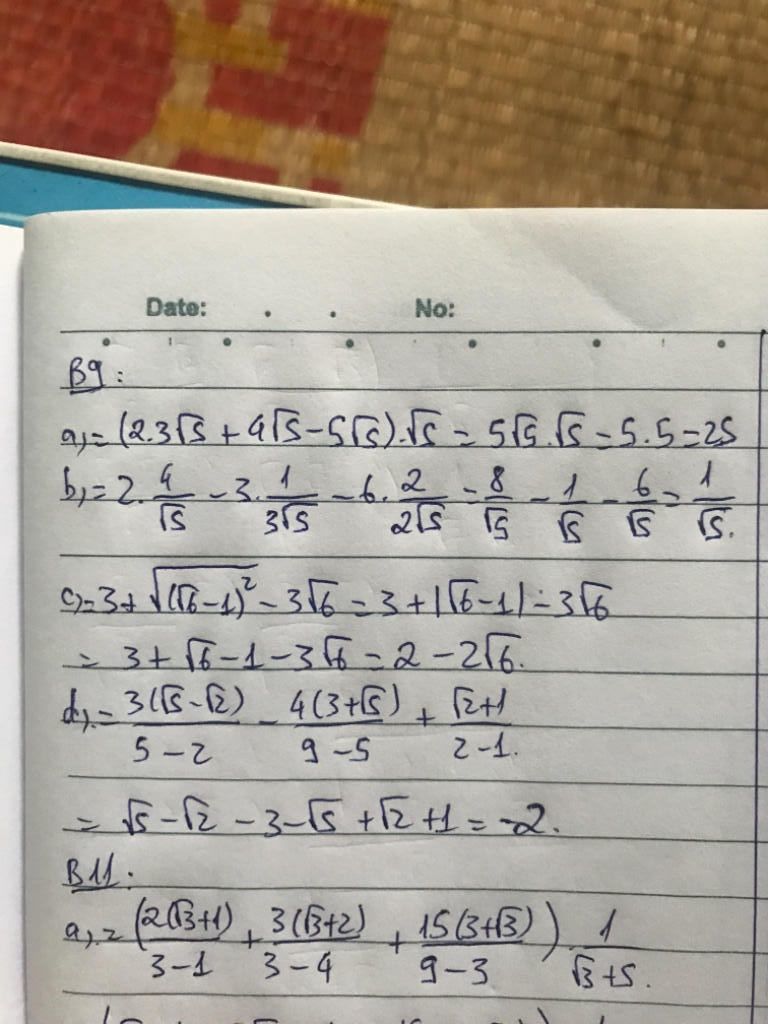 Date: . . No:
B9:
a, = (2.3√5 + 4√5 - 5√5).√5 = 5√5.√5 = 5.5 = 25
b, = 2. 4/√5 - 3. 1/3√5 - 6. 2/2√5 = 8/√5 - 1/√5 - 6/√5 = 1/√5.
c, = 3 + √((√6-1)²) - 3√6 = 3 + |√6-1| - 3√6
= 3 + √6 - 1 - 3√6 = 2 - 2√6.
d, = 3(√5-√2)/(5-2) - 4(3+√5)/(9-5) + (√2+1)/(2-1).
= √5 - √2 - 3 - √5 + √2 + 1 = -2.
B11:
a, = (2(√3+1)/(3-1) + 3(√3+2)/(3-4) + 15(3+√3)/(9-3)) 1/(√3+5).